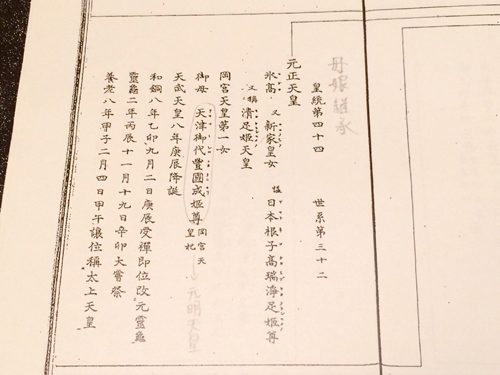 母娘継承
皇統第四十四 世系第三十二
元正天皇
氷高 又 新家皇女 諡 日本根子高瑞淨足姫尊
又稱 清足姫天皇
岡宮天皇第一女
御母 天津御代豐國成姫尊 岡宮天皇妃 元明天皇
天武天皇八年庚辰降誕
和銅八年乙卯九月二日庚辰受禪即位改元靈龜
靈龜二年丙辰十一月十九日辛卯大嘗祭
養老八年甲子二月四日甲午讓位稱太上天皇